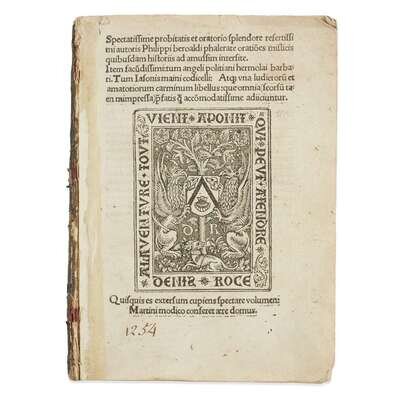 Spectatissime probitatis et oratorio splendore refertissi
mi autoris Philippi beroaldi phalerate oratiões mislicis
quibusdam historiis ad amussim intersite.
Item facūdissimi tum angeli politiani hermolai barba⸗
ri. Tum Iasonis maini codicelli: Atq; vna ludicrorū et
amatoriorum carminum libellus que omnia seorsū ta⸗
en impressa
accōmodatissime adiciuntur.
ALAVENTVRE · TOVT
VIENT · APOINT
QVI · PEVT · ATENDRE
D R
DENIS ROCE
Quisquis es extersum cupiens spectare volumen:
Martini modico conferet ære domus.
1254